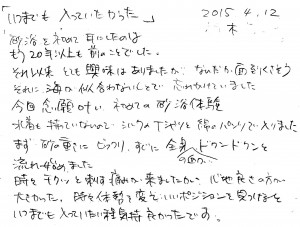 「いつまでも入っていたかった」 2015 4.12
木
砂浴を初めて耳にしたのは
もう20年以上も前のことでした。
それ以来とても興味はありましたが なんだか面倒くさそう
それに海が似合わないしとで忘れかけていました
今回念願叶い初めての砂浴体験
水着も持っていないのでシルクのTシャツと綿のパンツで入りました
まず砂の重さにビックリ、すぐに全身へドクンドクンと
流れ始めました
時々チクッと刺す痛みが来ましたが、心地良さの方が
大きかった。時々体勢を変えていいポジションを見つけると
いつまでも入っていたい程気持良かったです。